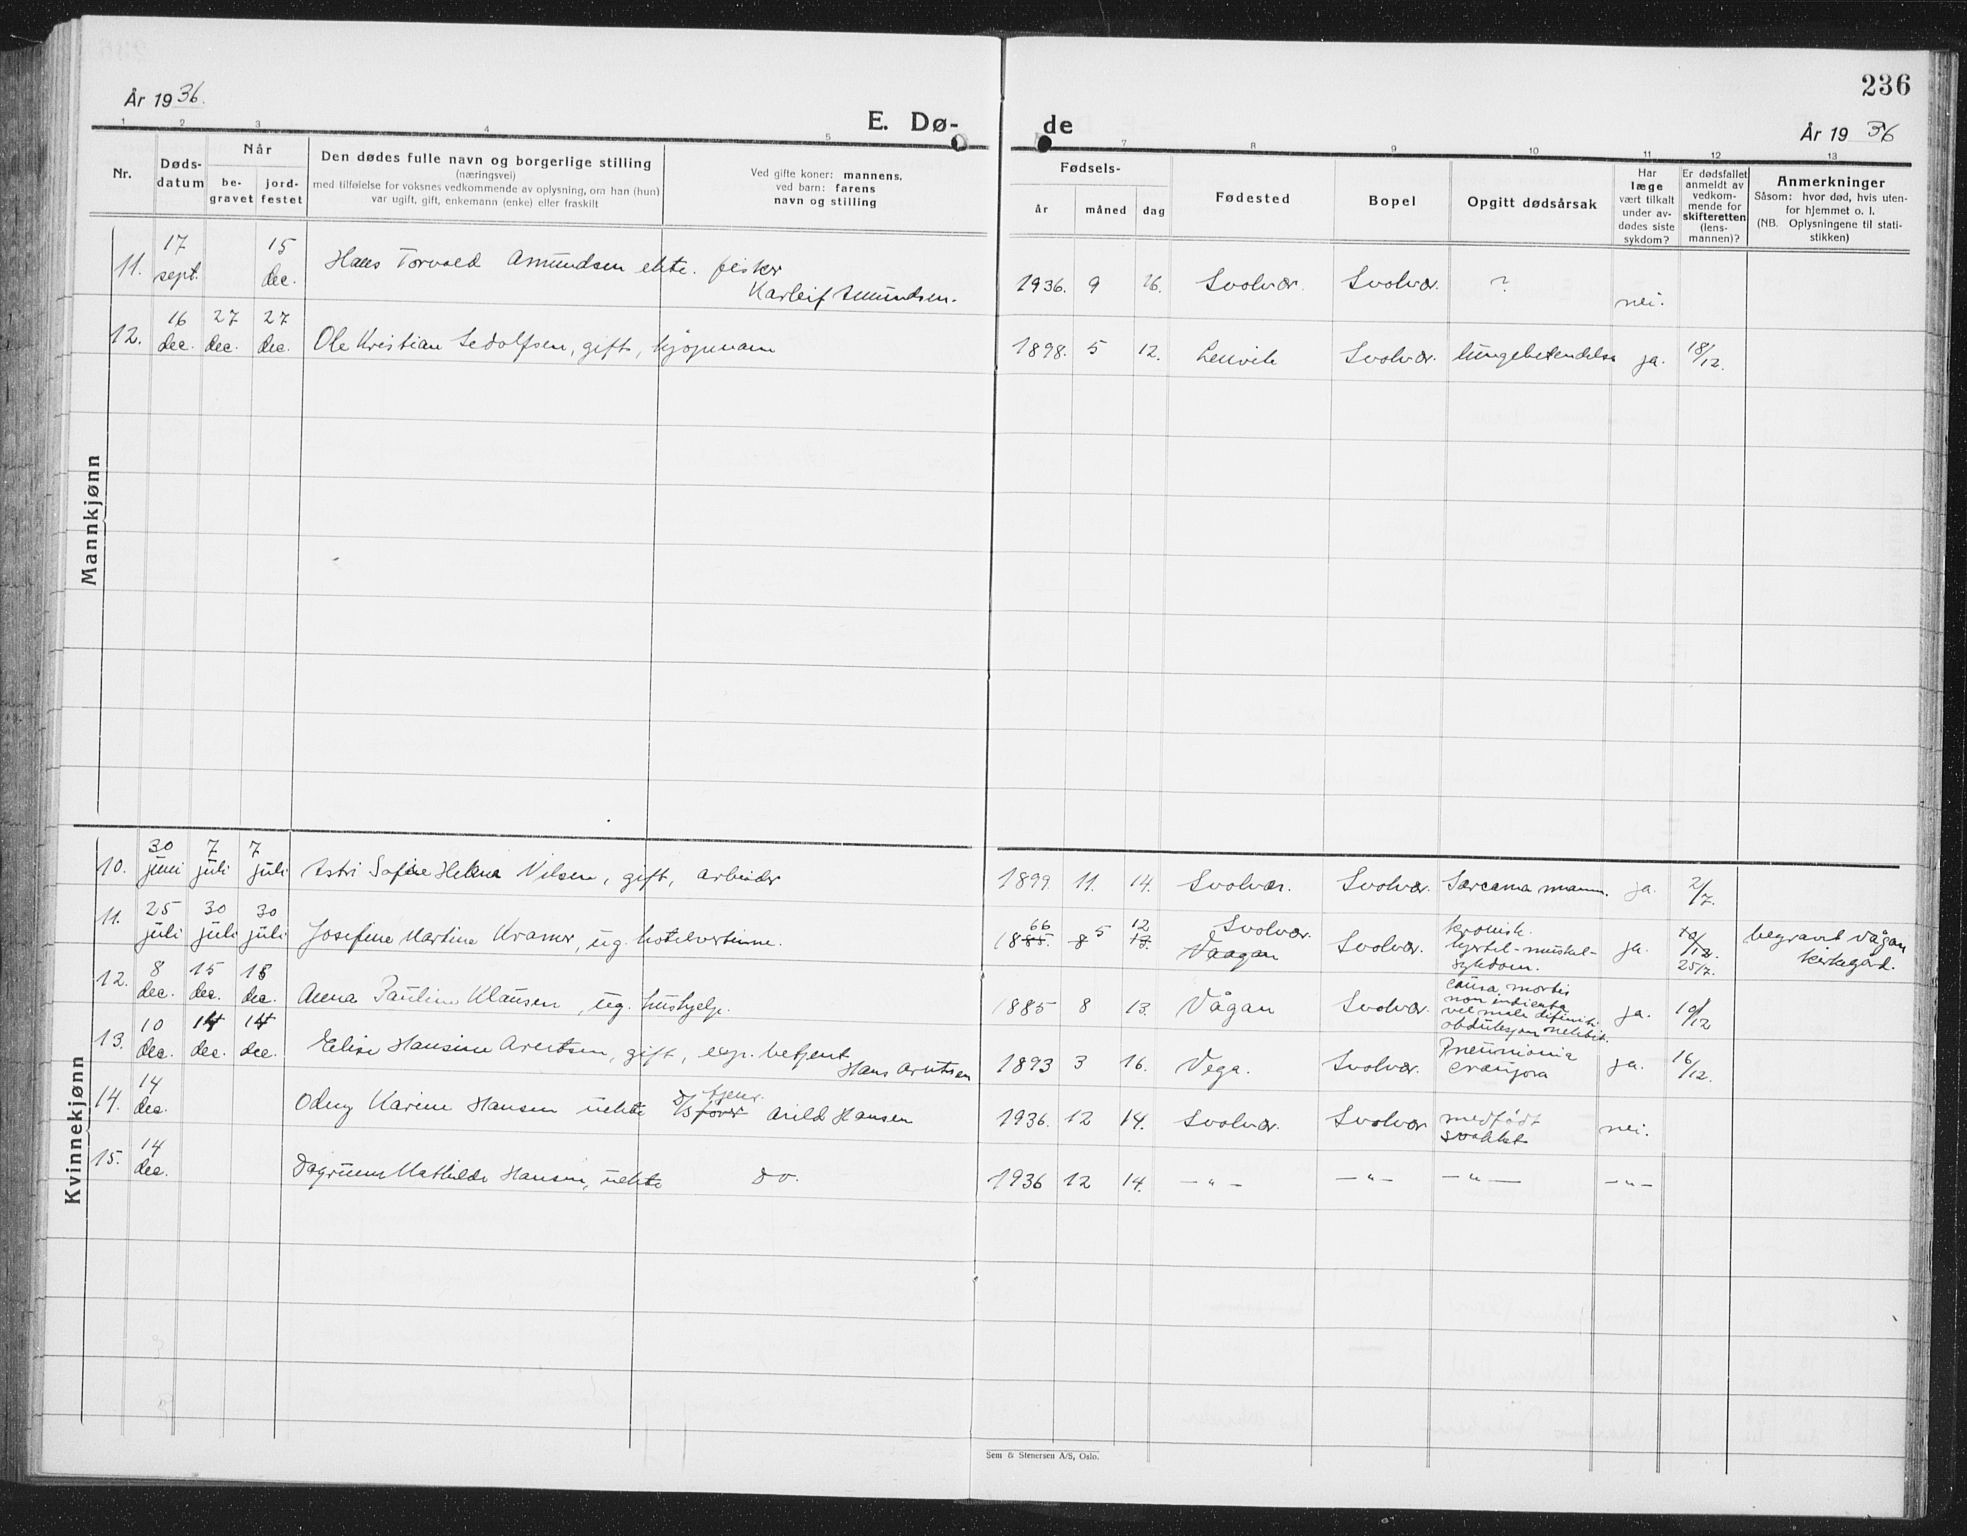 236
År 1936.
E. Dø-
de
År 1936
1 2 3 4 5 7 8 9 10 11 12 13
Nr.
Døds-
datum
Når
be-
gravet
jord-
festet
Den dødes fulle navn og borgerlige stilling
(næringsvei)
med tilføielse for voksnes vedkommende av oplysning, om han (hun)
var ugift, gift, enkemann (enke) eller fraskilt
Ved gifte koner: mannens,
ved barn: farens
navn og stilling
Fødsels-
år måned dag
Fødested
Bopel
Opgitt dødsårsak
Har
læge
vært tilkalt
under av-
dødes siste
sykdom?
Er dødsfallet
anmeldt av
vedkom-
mende for
skifteretten
(lens-
mannen)?
Anmerkninger
Såsom: hvor død, hvis uten-
for hjemmet o. l.
(NB. Oplysningene til stati-
stikken)
Mannkjønn
11. 17 sept. 15 dec. Hans Torvald Amundsen ekte. fisker
Karleif Amundsen. 1936. 9 16. Svolvær. Svolvær. ? nei.
12. 16 dec. 27 dec. 27 dec. Ole Kristian Sedolfsen, gift, kjøpmann 1898. 5 12. Svolvær. lungebetendelse ja. 18/12.
Kvinnekjønn
10. 30 juni 7 juli 7 juli Astri Sofie Helena Nilsen, gift, arbeider 1899. 11. 14. Svolvær. Svolvær. Sarcoma mamm. ja. 2/7.
11. 25 juli 30 juli 30 juli Josefine Martine Kramer, ug. hotelvertinne. 1885. 66 8 5 13. 12 Svolvær. Vaagan Svolvær. kronisk.
hjertel-muskel-
sykdom. ja. 25/7. begravet Vågan
kirkegård.
12. 8 dec. 15 dec. 15 dec. Anna Pauline Klausen, ug. hushjelp. 1885 8 13. Vågan Svolvær. causa mortis
non indicata
vel male definit.
obduksjon nektet. ja. 19/12
13. 10 dec. 14 dec. 14 dec. Elise Hansine Arntsen, gift, exp. betjent
Hans Arntsen 1893 3 16. Vega. Svolvær. Pneumonia
crouposa ja. 16/12.
14. 14 dec. Odny Karine Hansen uekte Arild Hansen 1936. 12 14. Svolvær. Svolvær medfødt
svakhet nei.
15. 14 dec. Dagrunn Mathilde Hansen, uekte do. 1936 12 14. — " — — " — — " — — " —
Sem & Stenersen A/S, Oslo.